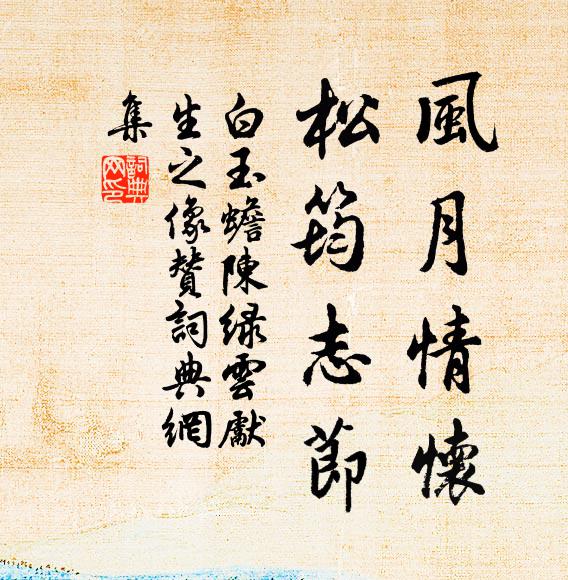 風月情懷
松筠志節
白玉蟾陳綠雲獻
生之像贊詞典網
集
詞典
网印